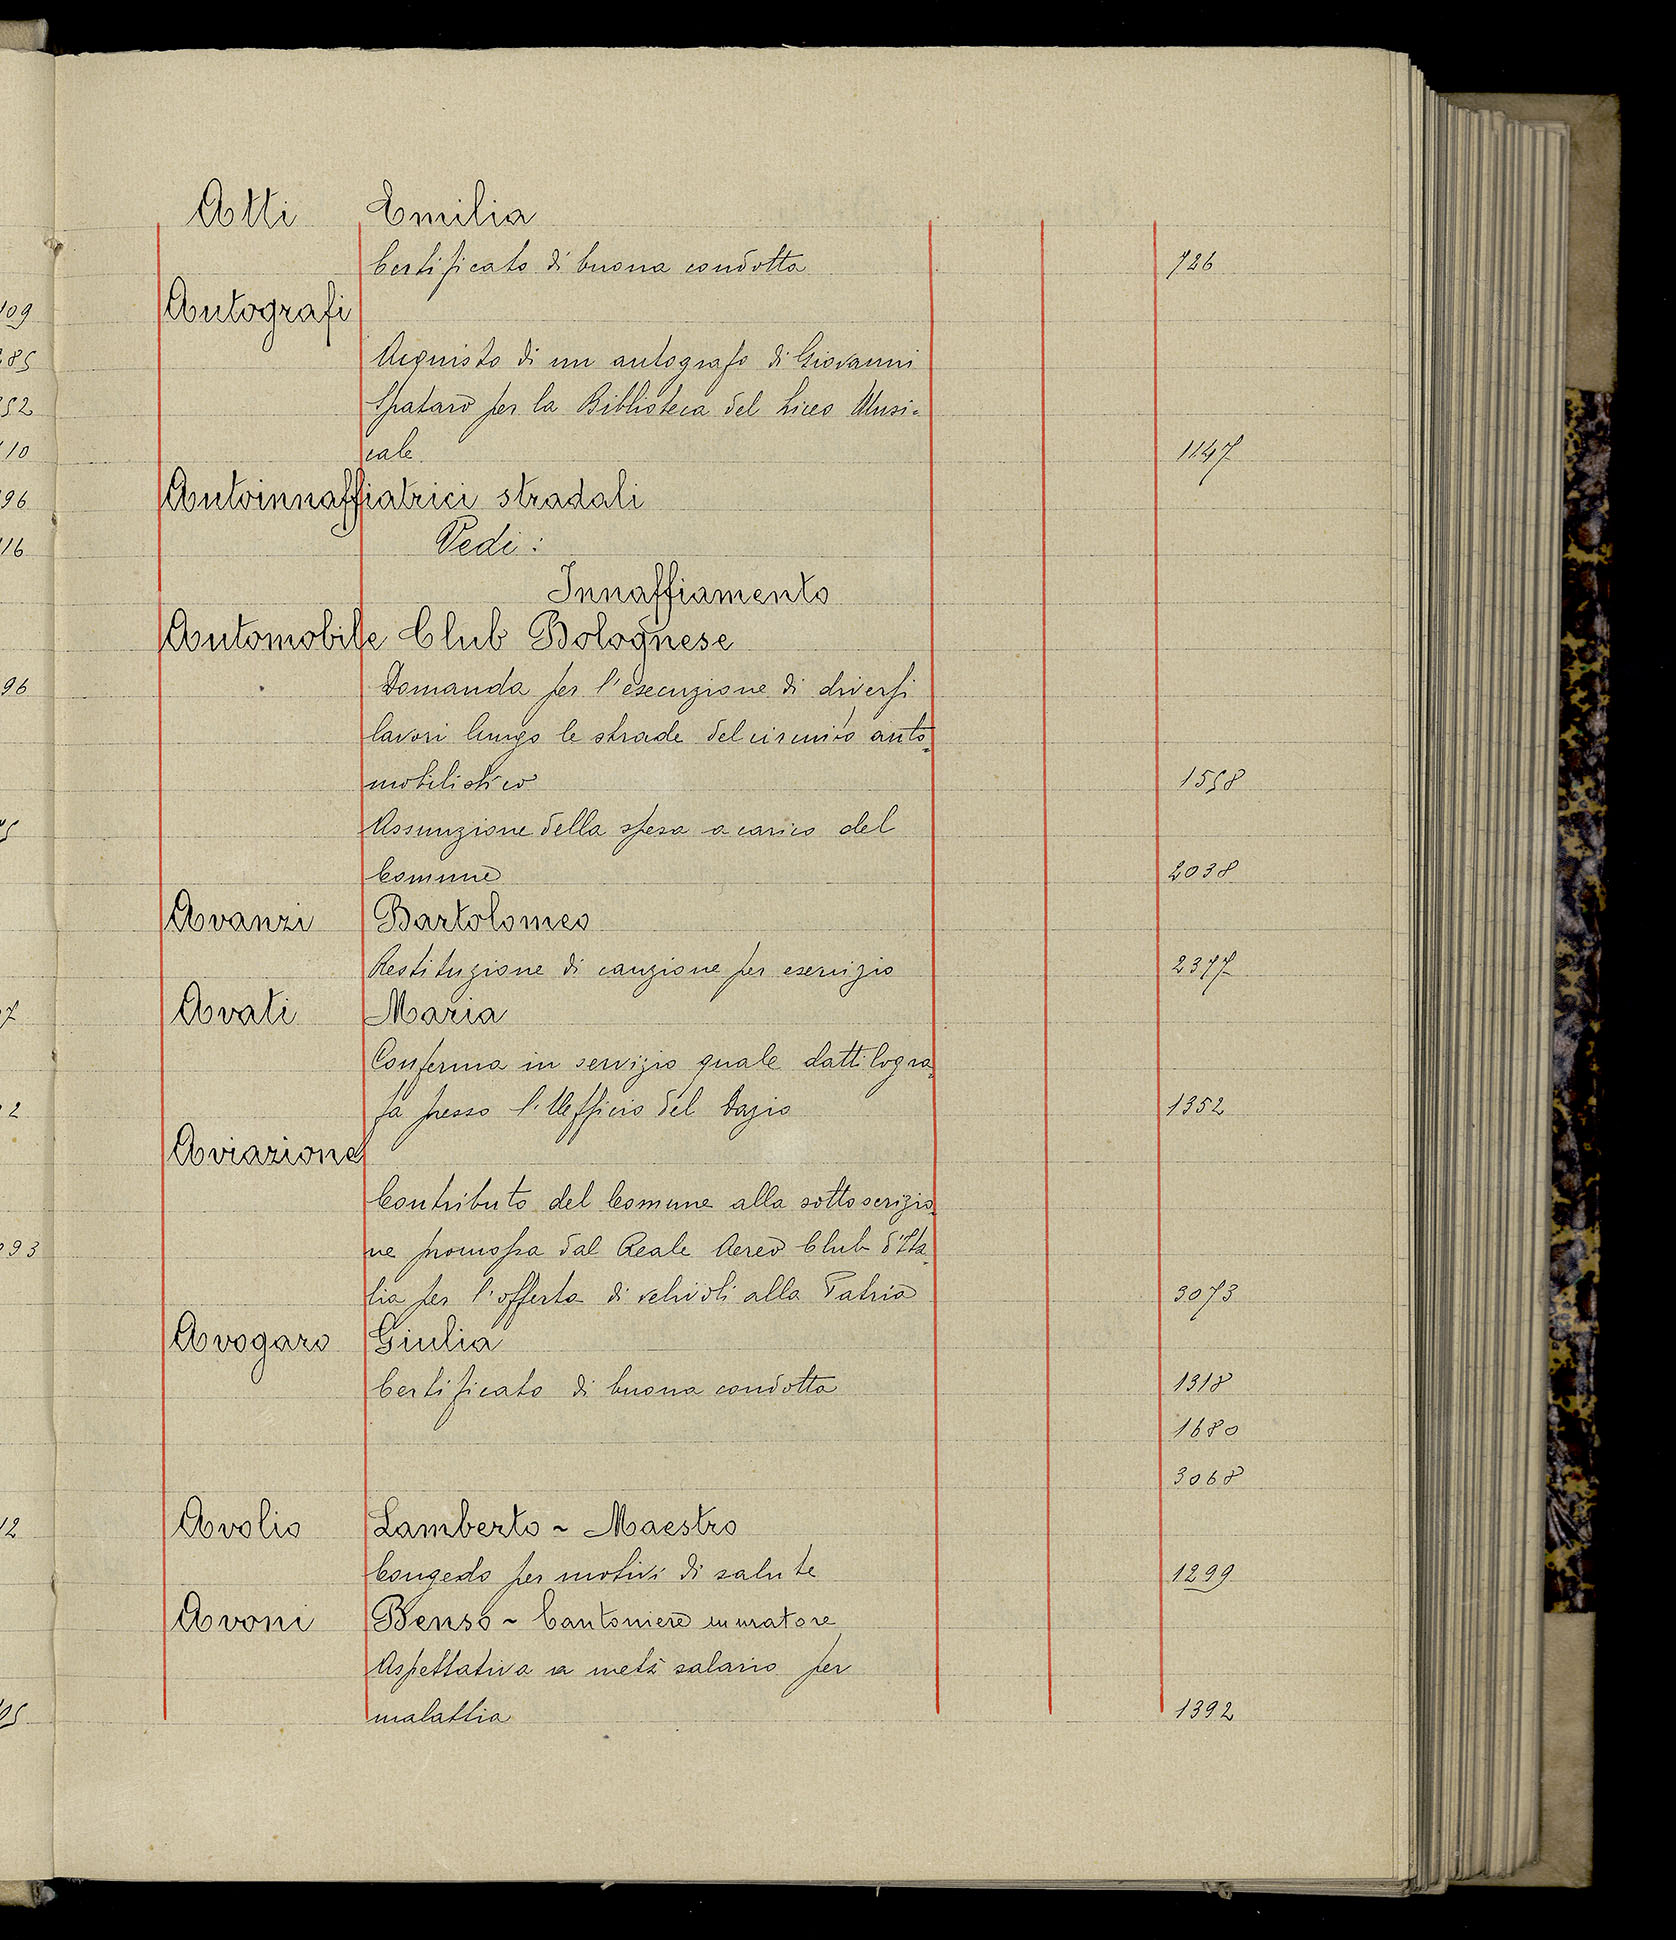 Atti Emilia
Certificato di buona condotta 726
Autografi
Acquisto di un autografo di Giovanni
Spataro per la Biblioteca del Liceo Musi=
cale 1147
Autoinnaffiatrici stradali
Vedi:
Innaffiamento
Automobile Club Bolognese
Domanda per l'esecuzione di diversi
lavori lungo le strade del circuito auto=
mobilistico 1558
Assunzione della spesa a carico del
Comune 2038
Avanzi Bartolomeo
Restituzione di cauzione per esercizio 2377
Avati Maria
Conferma in servizio quale dattilogra=
fa presso l'Ufficio del Dazio 1352
Aviazione
Contributo del Comune alla sottoscrizio=
ne promossa dal Reale Aereo Club d'Ita=
lia per l'offerta di velivoli alla Patria 3073
Avogaro Giulia
Certificato di buona condotta 1318
1680
3068
Avolio Lamberto ~ Maestro
Congedo per motivi di salute 1299
Avoni Benso ~ Cantoniere muratore
Aspettativa a metà salario per
malattia 1392